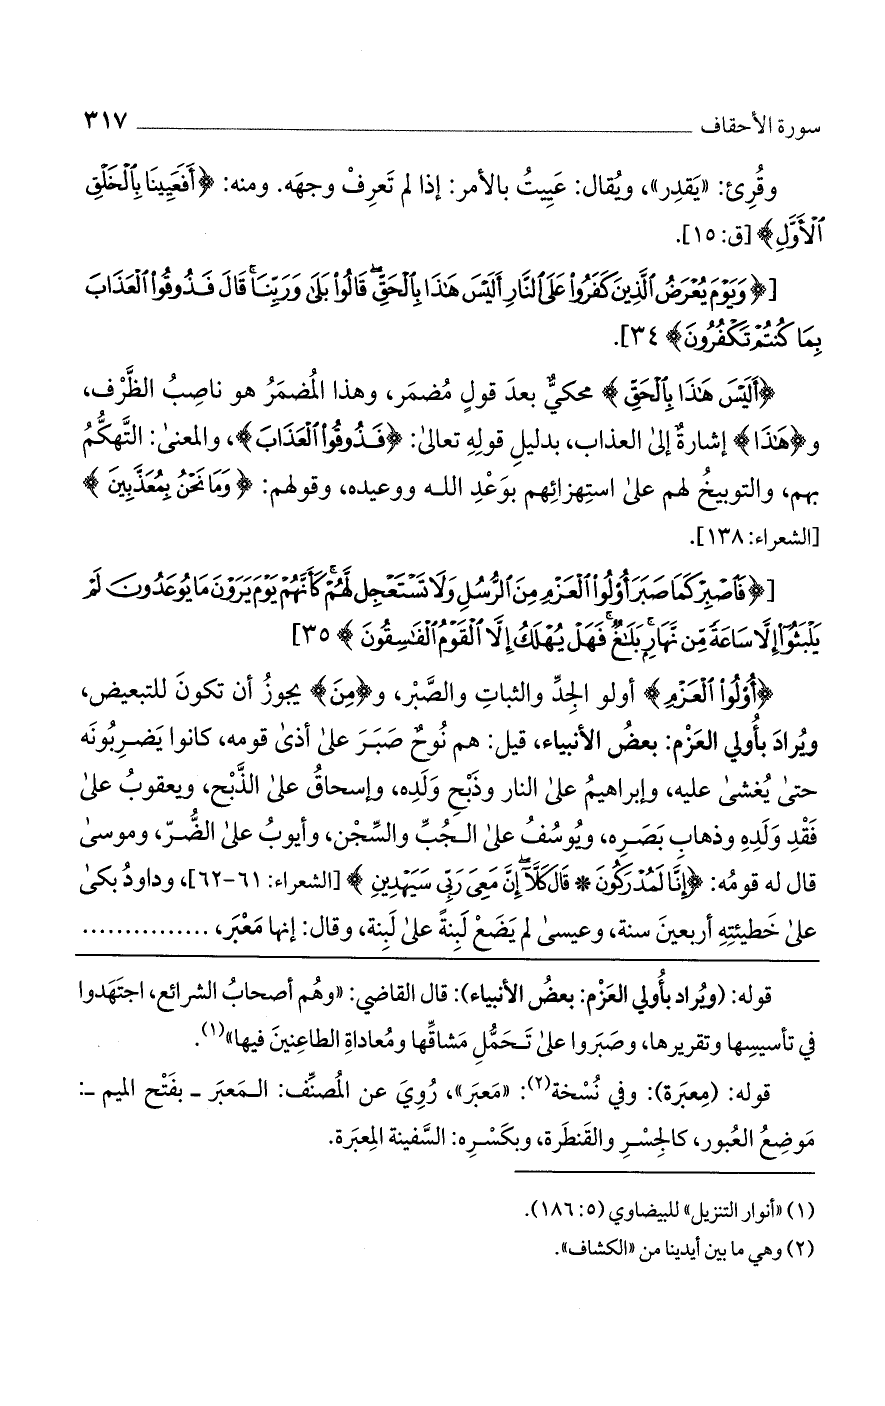 سورة الأحقاف ٣١٧
وقُرِئ: «يَقدِر»، ويُقال: عَيِيتُ بالأمر: إذا لم تَعرِفْ وجهَه. ومنه: ﴿أَفَعَيِينَا بِالْخَلْقِ
الْأَوَّلِ﴾ [ق: ١٥].
[﴿وَيَوْمَ يُعْرَضُ الَّذِينَ كَفَرُوا عَلَى النَّارِ أَلَيْسَ هَٰذَا بِالْحَقِّ ۖ قَالُوا بَلَىٰ وَرَبِّنَا ۚ قَالَ فَذُوقُوا الْعَذَابَ
بِمَا كُنْتُمْ تَكْفُرُونَ﴾ ٣٤].
﴿أَلَيْسَ هَٰذَا بِالْحَقِّ﴾ محكيٌّ بعدَ قولٍ مُضمَر، وهذا المُضمَرُ هو ناصِبُ الظَّرْف،
و﴿هَٰذَا﴾ إشارةٌ إلىٰ العذاب، بدليلِ قولِهِ تعالىٰ: ﴿فَذُوقُوا الْعَذَابَ﴾، والمعنىٰ: التَّهكُّمُ
بهم، والتوبيخُ لهم علىٰ استهزائِهم بوَعْدِ اللـه ووعيده، وقولهم: ﴿وَمَا نَحْنُ بِمُعَذَّبِينَ﴾
[الشعراء: ١٣٨].
[﴿فَاصْبِرْ كَمَا صَبَرَ أُوْلُوا الْعَزْمِ مِنَ الرُّسُلِ وَلَا تَسْتَعْجِل لَّهُمْ ۚ كَأَنَّهُمْ يَوْمَ يَرَوْنَ مَا يُوعَدُونَ لَمْ
يَلْبَثُوٓا إِلَّا سَاعَةً مِّن نَّهَارٍ ۚ بَلَاغٌ ۚ فَهَلْ يُهْلَكُ إِلَّا الْقَوْمُ الْفَاسِقُونَ﴾ ٣٥]
﴿أُوْلُوا الْعَزْمِ﴾ أولو الجِدِّ والثباتِ والصَّبْر، و﴿مِنَ﴾ يجوزُ أن تكونَ للتبعيض،
ويُرادَ بأُولي العَزْم: بعضُ الأنبياء، قيل: هم نُوحٌ صَبَرَ علىٰ أذىٰ قومه، كانوا يَضـرِبُونَه
حتىٰ يُغشىٰ عليه، وإبراهيمُ علىٰ النار وذَبْحِ وَلَدِه، وإسحاقُ علىٰ الذَّبْح، ويعقوبُ علىٰ
فَقْدِ وَلَدِهِ وذهابِ بَصَـرِه، ويُوسُفُ علىٰ الـجُبِّ والسِّجْن، وأيوبُ علىٰ الضُّـرّ، وموسىٰ
قال له قومُه: ﴿إِنَّا لَمُدْرَكُونَ * قَالَ كَلَّا ۖ إِنَّ مَعِىَ رَبِّى سَيَهْدِينِ﴾ [الشعراء: ٦١-٦٢]، وداودُ بكىٰ
علىٰ خَطيئتِهِ أربعينَ سنة، وعيسىٰ لم يَضَعْ لَبِنةً علىٰ لَبِنة، وقال: إنها مَعْبَر، ...............
قوله: (ويُراد بأُولي العَزْم: بعضُ الأنبياء): قال القاضي: «وهُم أصحابُ الشرائع، اجتَهَدوا
في تأسيسِها وتقريرها، وصَبَروا علىٰ تَـحَمُّلِ مَشاقِّها ومُعاداةِ الطاعِنينَ فيها»(١).
قوله: (مِعبَرة): وفي نُسْخة(٢): «مَعبَر»، رُوِيَ عن المُصنِّف: الـمَعبَر ـ بفَتْح الميم ـ:
مَوضِعُ العُبور، كالجِسْـرِ والقَنطَرة، وبكَسْـرِه: السَّفينة المِعبَرة.
(١) «أنوار التنزيل» للبيضاوي (٥: ١٨٦).
(٢) وهي ما بين أيدينا من «الكشاف».